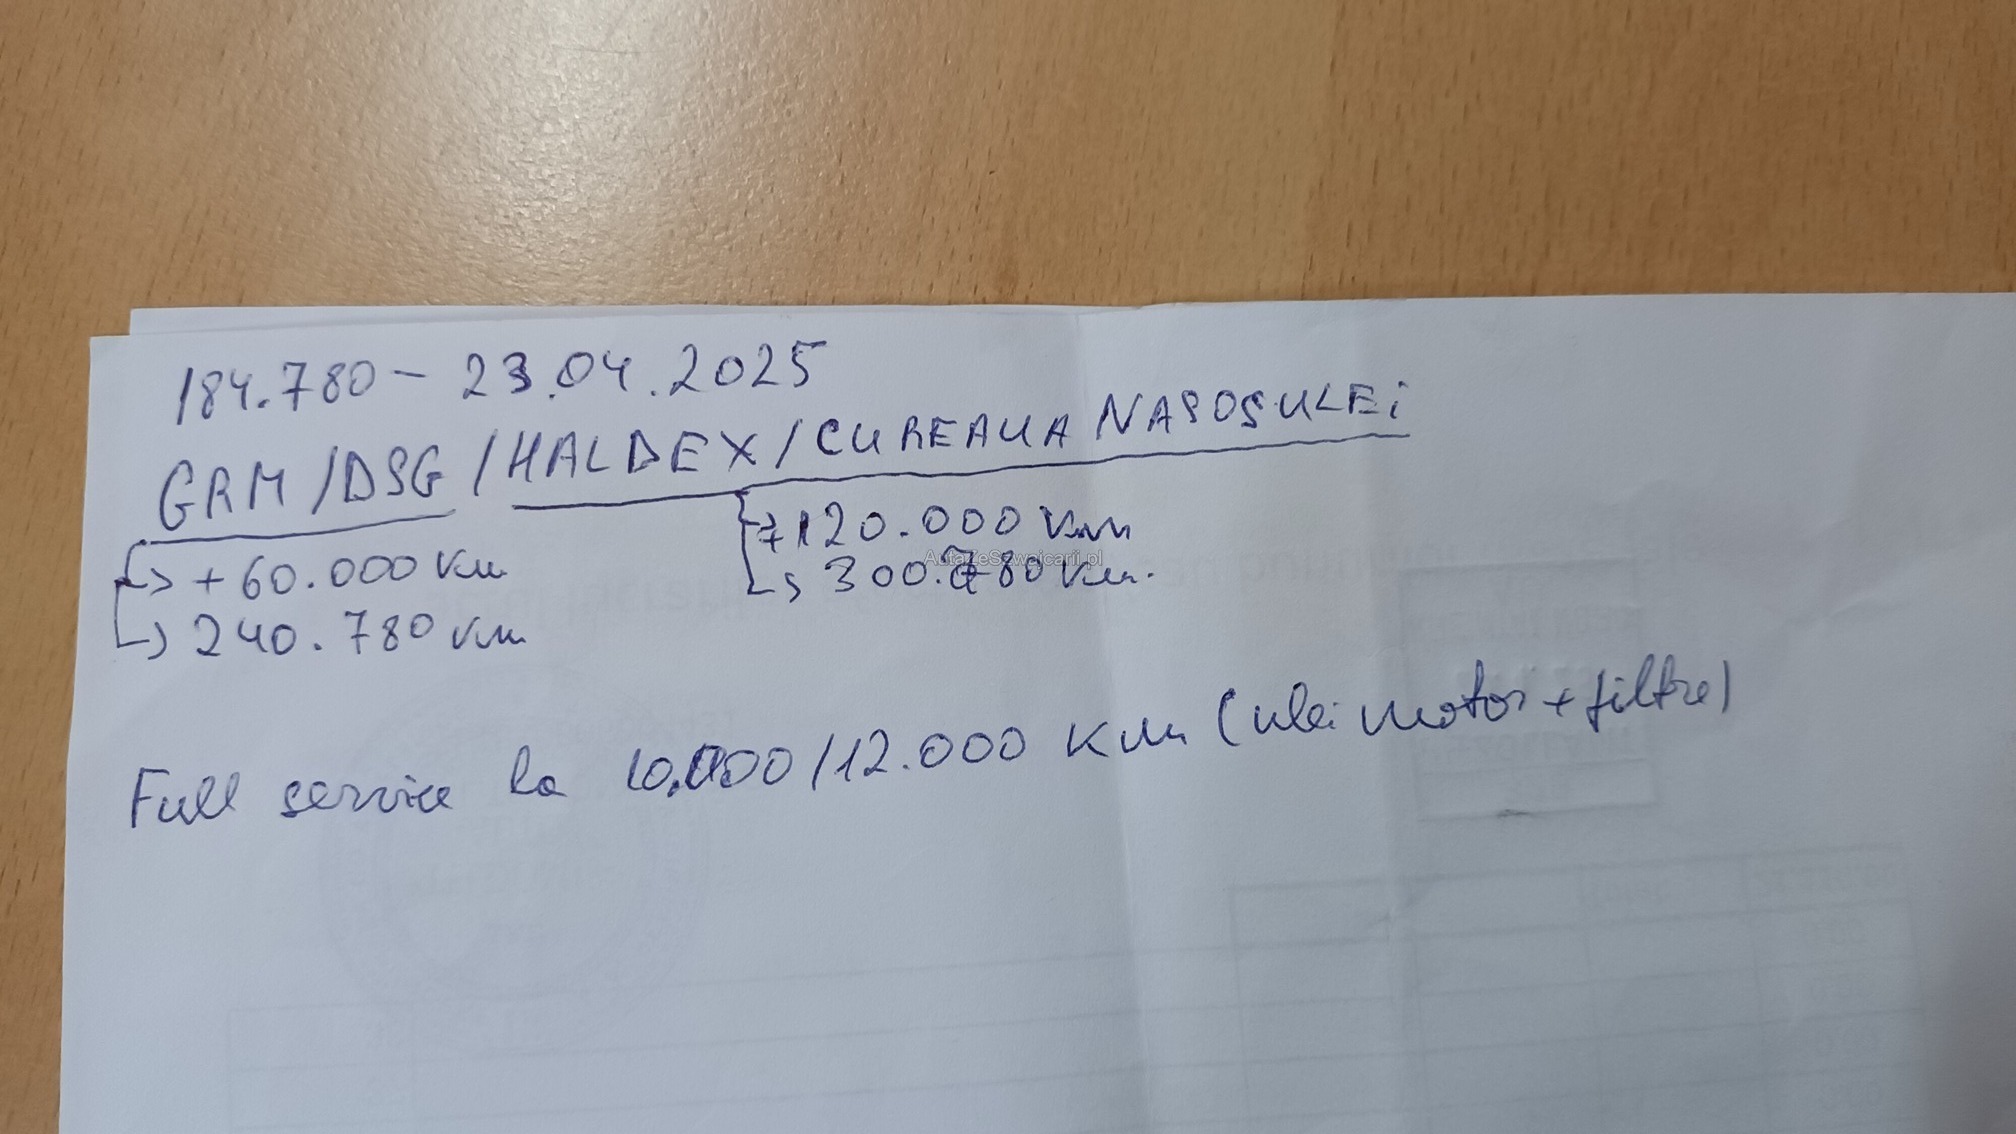 184.780 - 23.04.2025
GRM/DSG/HALDEX/CUREAUA NASOSULEI
+ 60.000 km
240.780 km
+120.000 km
300.780 km.
AutaZeSzwajcarii.pl
Full service la 10.000/12.000 km (ulei motor + filtre)